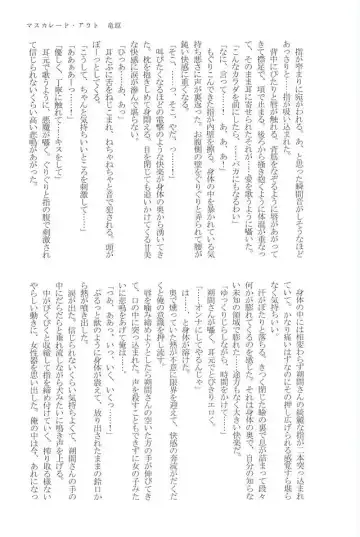 マスカレード・アウト 竜庭
指が窄まりに宛がわれる。あ、と思った瞬間音がしそうなほど
あっさりと……指が吸い込まれた。
背中にぴたりと唇が触れる。背筋をなぞるように唇があがって
きて襟足で、頃で止まる。後ろから掻き抱くように体温が重なっ
て、そのまま耳に寄せられたそれが……愛を歌うように囁いた。
「こんなカワヴに前したら……バカにもなるわ」
「て、言わないで、あ、あ、あ！」
もぐりこんだ指が内壁を擦る。身体の中を暴かれている気
持ち悪さに声が裏返った。腹側の壁をぐりぐりと弄られて腰が
鈍い快感に重くなる。
「そこ、……っ、そこ、やだ、っ……！」
叫びたくなるほどの電撃のような快楽が身体の奥から湧いてき
た。枕を抱きしめて身悶える。目を閉じても追いかけてくる甘美
な快感に涙が滲んで堪らない。
「ひっああ、あ、あぁっ」
耳たぶに舌をねじこまれ、ねちゃねちゃと音で犯される。頭が
「あ、っう……ちゃんと気持ちいいところを刺激して……！」
「優しく、丁寧に触れて……キスをして」
耳元で歌うように、悪魔が囁く。ぐりぐりと指の腹で刺激され
て信じられないくらい高い悲鳴があがった。
身体の中には相変わらず朔間さんの綺麗な指が一本突っ込まれ
ていて、かなり痛いはずなのにその押し広げられる感覚すら堪ら
なく気持ちいい。
汗がぽたりと落ちる。きつく閉じた瞼の裏で星が詰まって段々
何かが膨れてくるのを感じた。それは身体の奥で、自分の知らな
い未知の領域で膨れた……途方もなく大きい快楽だ。
「ゆっくりじらしながら、時間をかけて……」
朔間さんが低く、耳元でとびきりエロく。
「……オンナにしてやるんじゃ」
は……、と身体が溶けた。
奥で燻っていた熱が不意に限界を迎えて、快感の奔流がだくだ
くと俺の意識を押し流す。
唇を噛み締めようとしたら朔間さんの空いた方の手が伸びてき
て、口の中に突っ込まれた。声を殺すこともできずに女の子みた
いに悲鳴をあげて俺は……。
「あ、あ……っ、いっ、いく、いくっ……！」
ぶるっと獣のように身体が震えて、放り出されたままの鈴口か
ら熱が噴き出した。
涙が出た。信じられないくらい気持ちよくて、朔間さんの手の
中にだらだらと垂れ流しながら犬みたいに鳴き声を上げる。
中がびくびくと収縮して指を締め付けているのがわかる。いや
らしい動きに、女性器を思い出した。俺の中は今、あれになっ